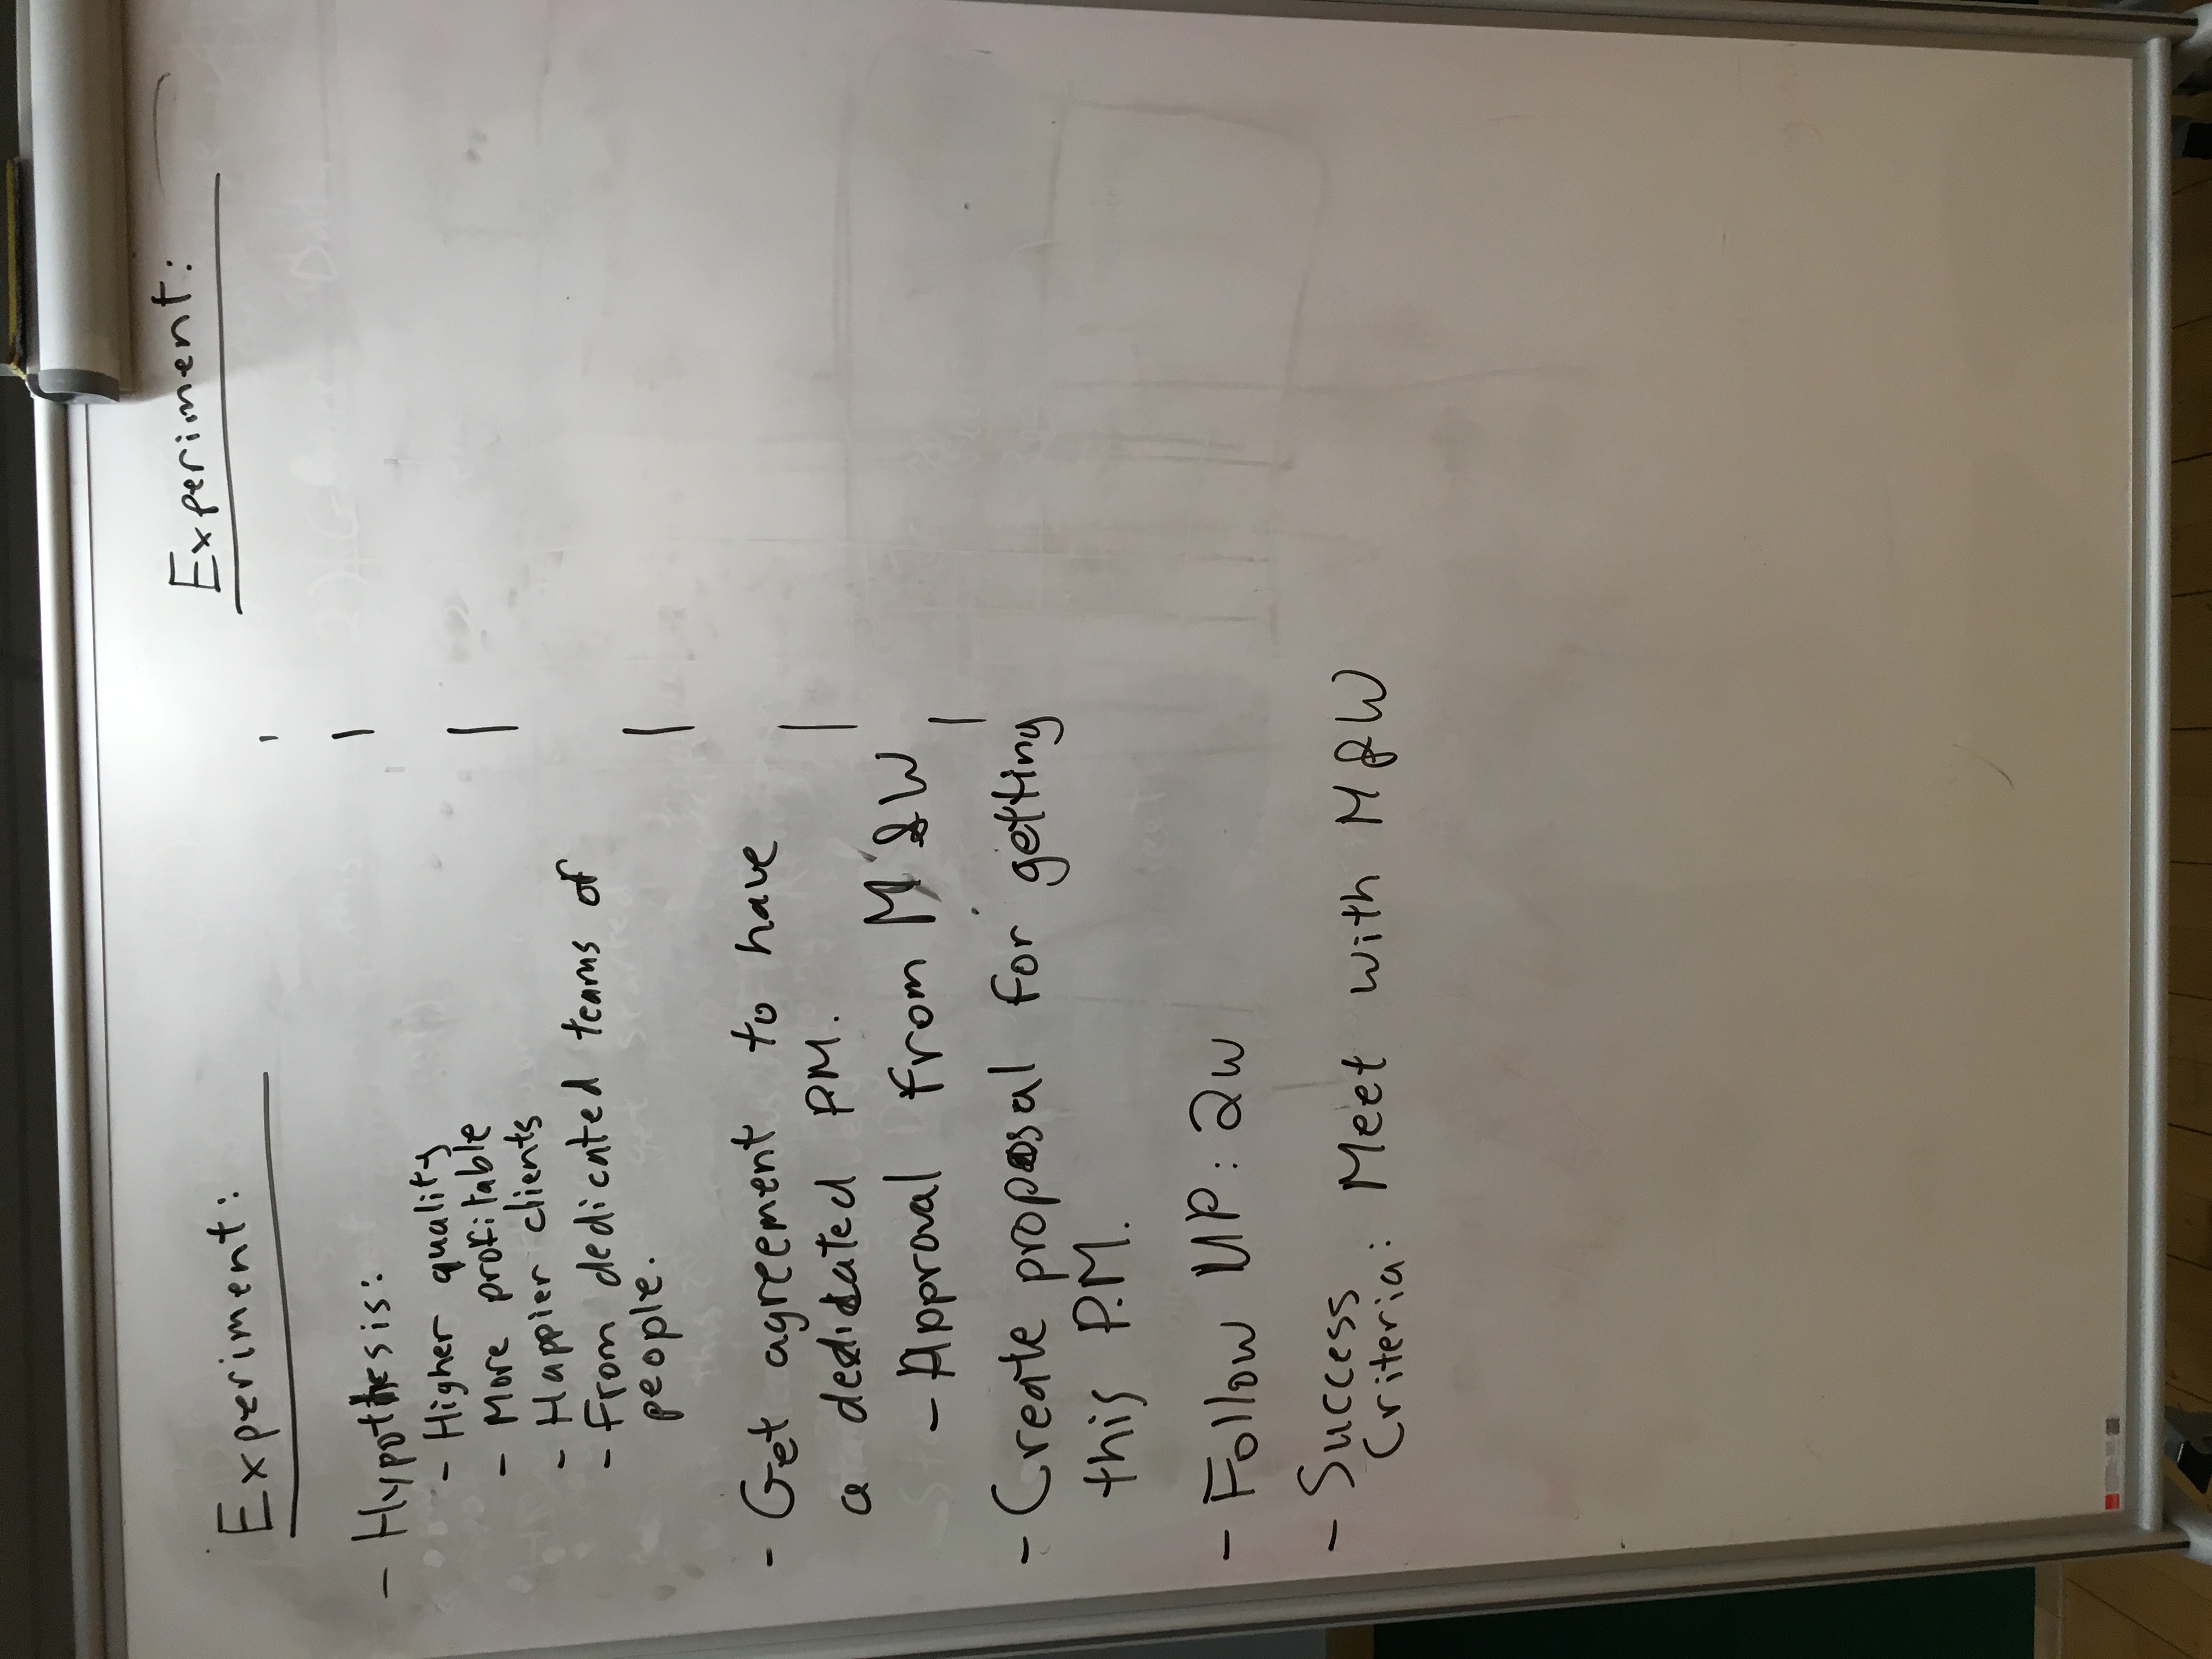 Experiment:
- Hypothesis:
- Higher quality
- More profitable
- Happier clients
- From dedicated teams of
people.
- Get agreement to have
a dedicated P.M.
- Approval from M&W
- Create proposal for getting
this P.M.
- Follow UP: 2w
- Success
Criteria: Meet with M&W
Experiment: